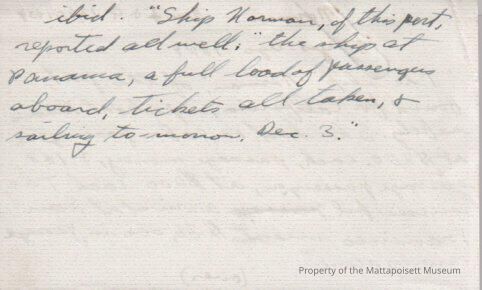 ibid. "Ship Norman, of this port,
reported all well; "the ship at
Panama, a full load of passengers
aboard, tickets all taken, &
sailing to-morrow, Dec. 3."
(over)
Property of the Mattapoisett Museum